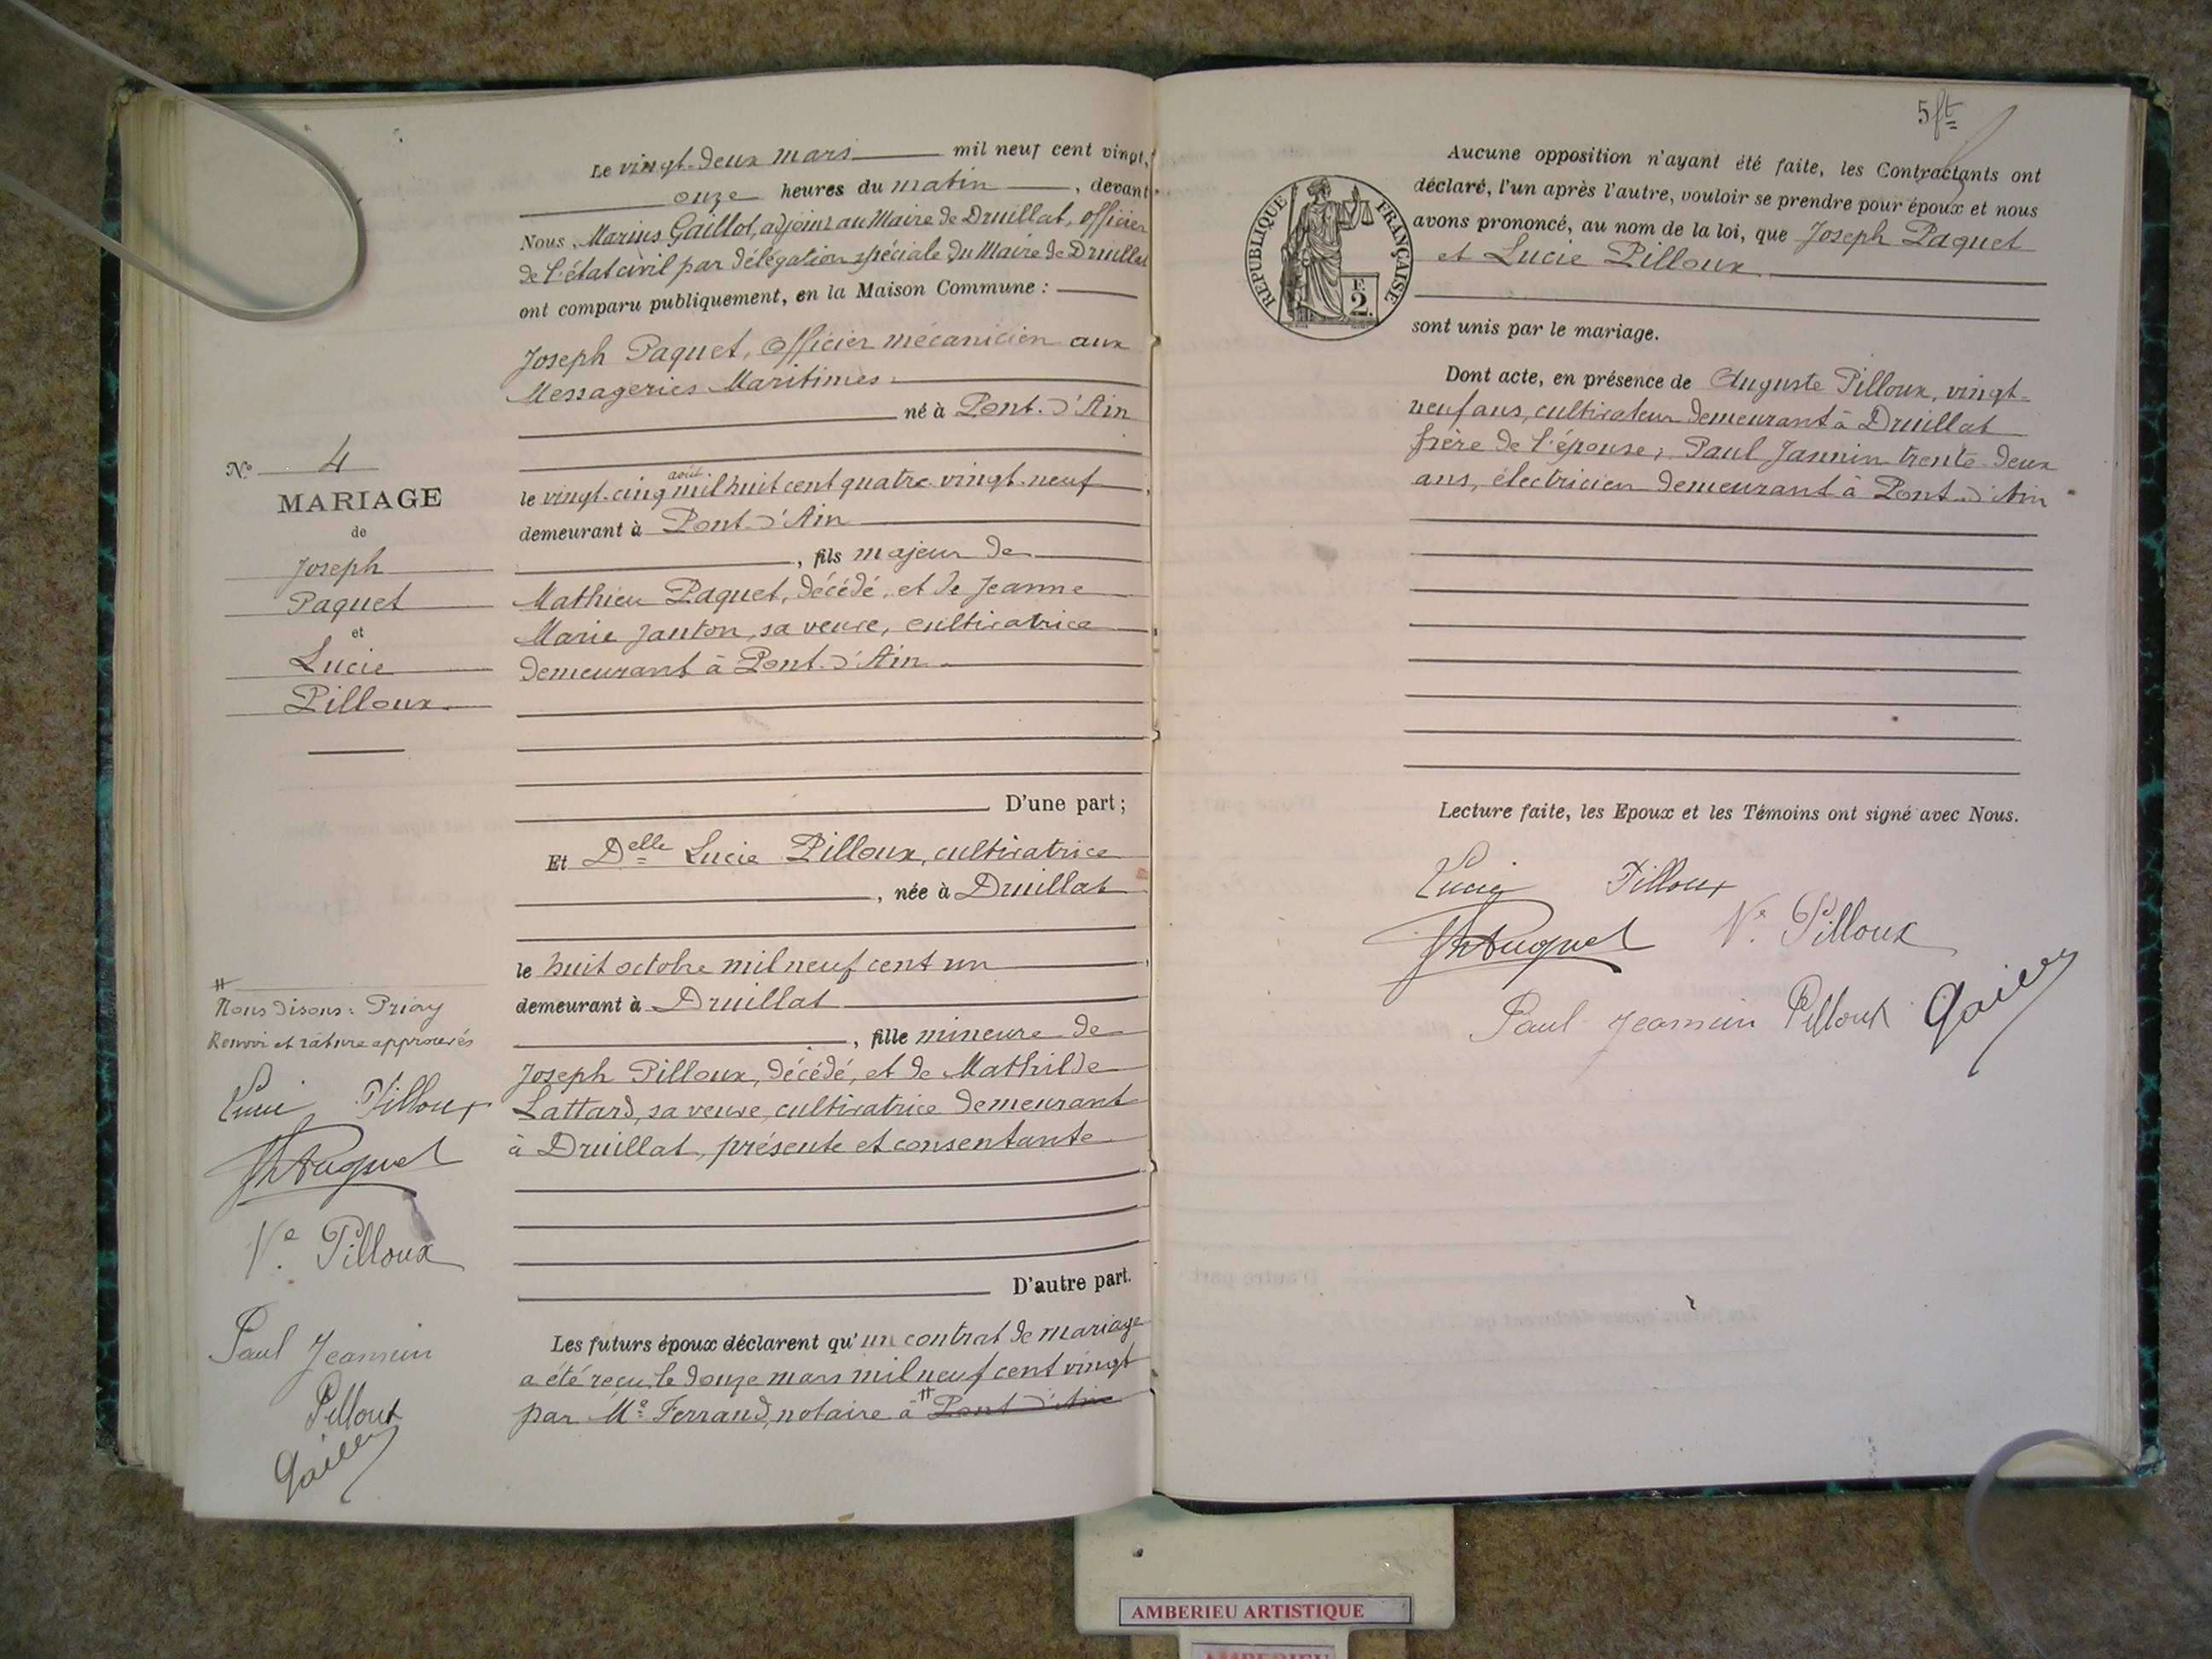 Le vingt-deux mars mil neuf cent vingt,
onze heures du matin, devant
Nous, Marius Gaillot, adjoint au Maire de Druillat, officier
de l'état civil par délégation spéciale du Maire de Druillat
ont comparu publiquement, en la Maison Commune :
Joseph Paquet, Officier mécanicien aux
Messageries Maritimes
né à Pont-d'Ain
août
le vingt-cinq mil huit cent quatre-vingt-neuf
demeurant à Pont-d'Ain
, fils majeur de
Mathieu Paquet, décédé, et de Jeanne
Marie Janton, sa veuve, cultivatrice
demeurant à Pont-d'Ain
D'une part ;
Et Delle Lucie Pilloux, cultivatrice
, née à Druillat
le huit octobre mil neuf cent un
demeurant à Druillat
, fille mineure de
Joseph Pilloux, décédé, et de Mathilde
Lattard, sa veuve, cultivatrice demeurant
à Druillat, présente et consentante
D'autre part.
Les futurs époux déclarent qu'un contrat de mariage
a été reçu le douze mars mil neuf cent vingt
par Me Ferrand, notaire à # Pont d'Ain
No 4
MARIAGE
de
Joseph
Paquet
et
Lucie
Pilloux
#
Nous disons : Priay
Renvoi et rature approuvés
Lucie Pilloux
JhPaquet
Ve Pilloux
Paul Jeannin
Pilloux
5 ft
REPUBLIQUE FRANÇAISE
F.
2.
Aucune opposition n'ayant été faite, les Contractants ont
déclaré, l'un après l'autre, vouloir se prendre pour époux et nous
avons prononcé, au nom de la loi, que Joseph Paquet
et Lucie Pilloux
sont unis par le mariage.
Dont acte, en présence de Auguste Pilloux, vingt-
neuf ans, cultivateur demeurant à Druillat
frère de l'épouse; Paul Jannin trente-deux
ans, électricien demeurant à Pont-d'Ain
Lecture faite, les Epoux et les Témoins ont signé avec Nous.
Lucie Pilloux
JhPaquet Ve Pilloux
Paul Jeannin Pilloux
AMBERIEU ARTISTIQUE
AMBERIEU